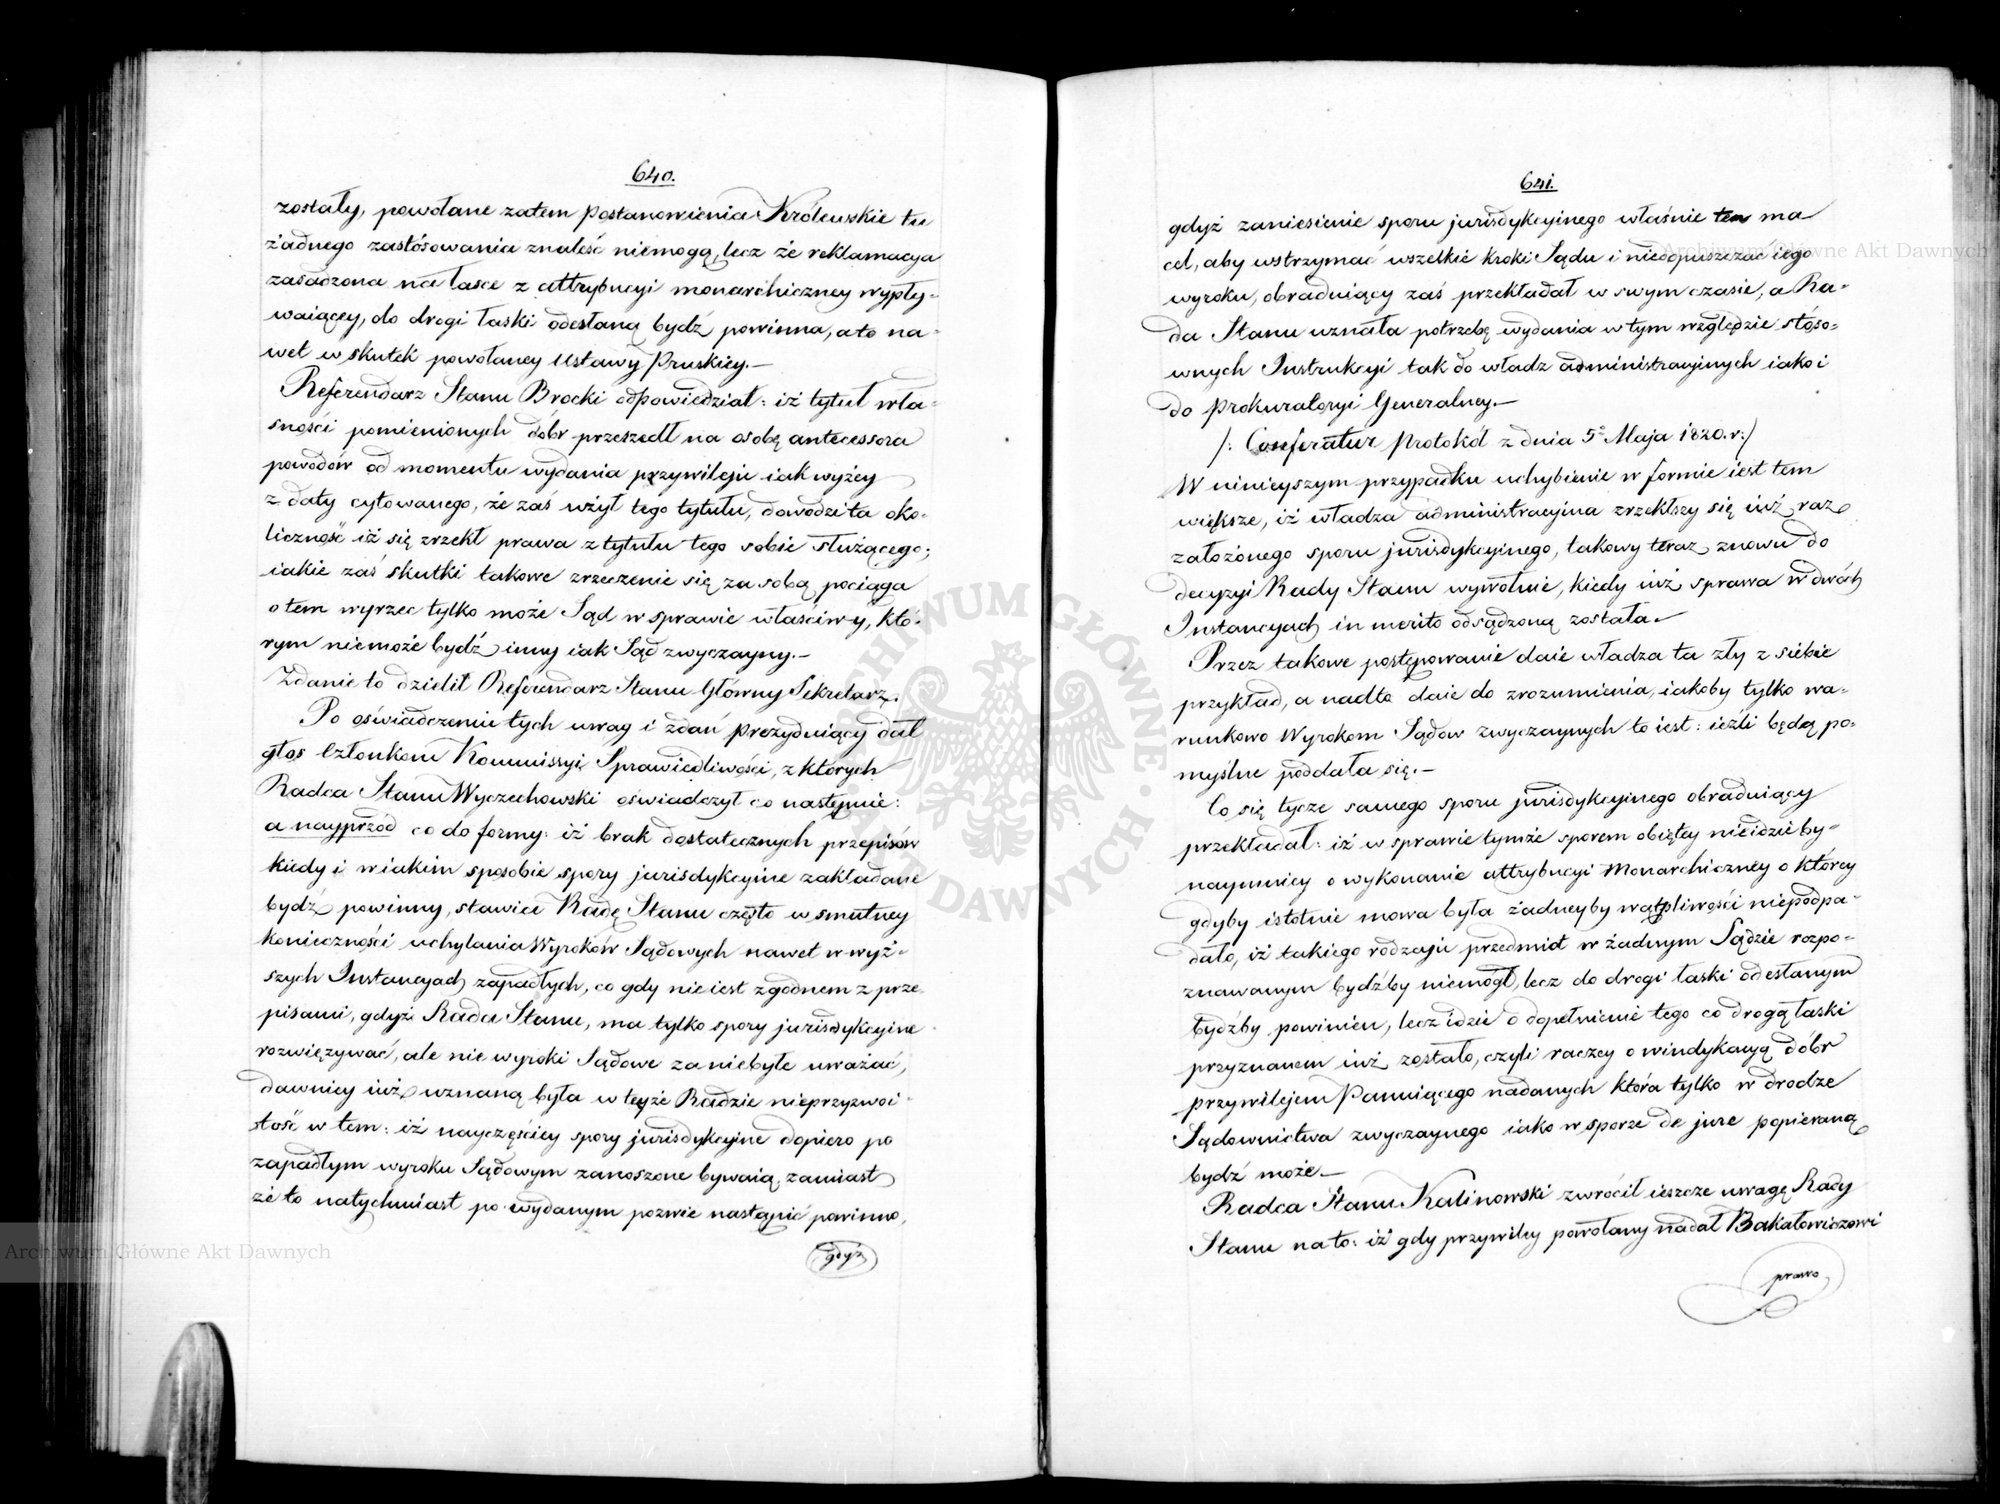 640.
zostały, powołane zatem postanowienia Królewskie tu
żadnego zastósowania znaleść niemogą, lecz że reklamacya
zasadzona na łasce z attrybucyi monarchiczney wypły-
waiącey, do drogi łaski odesłaną bydź powinna, a to na-
wet w skutek powołaney Ustawy Pruskiey.—
Referendarz Stanu Brocki odpowiedział: iż tytuł wła-
sności pomienionych dóbr przeszedł na osobę antecessora
powodów od momentu wydania przywileju iak wyżey
z daty cytowanego, że zaś użył tego tytułu, dowodzi ta oko-
liczność iż się zrzekł prawa z tytułu tego sobie służącego;
iakie zaś skutki takowe zrzeczenie się za sobą pociąga
o tem wyrzec tylko może Sąd w sprawie właściwy, któ-
rym niemoże bydź inny iak Sąd zwyczayny.—
Zdanie to dzielił Referendarz Stanu Główny Sekretarz.
Po oświadczeniu tych uwag i zdań Prezyduiący dał
głos Członkom Kommissyi Sprawiedliwości, z których
Radca Stanu Wyczechowski oświadczył co następuie:
a nayprzód co do formy: iż brak dostatecznych przepisów
kiedy i w iakim sposobie spory jurisdykcyine zakładane
bydź powinny, stawia Radę Stanu często w smutney
konieczności uchylania Wyroków Sądowych nawet w wyż-
szych Instancyach zapadłych, co gdy nieiest zgodnem z prze-
pisami, gdyż Rada Stanu, ma tylko spory jurisdykcyine
rozwięzywać, ale nie wyroki Sądowe za niebyłe uważać,
dawniey iuż uznaną była w teyże Radzie nieprzyzwoi-
tość w tem: iż nayczęściey spory jurisdykcyjne dopiero po
zapadłym wyroku Sądowym zanoszone bywaią, zamiast
że to natychmiast po wydanym pozwie nastąpić powinno,
gdyż
641.
gdyż zaniesienie sporu jurisdykcyinego właśnie ten ma
cel, aby wstrzymać wszelkie kroki Sądu i niedopuszczać iego
wyroku, obraduiący zaś przekładał w swym czasie, a Ra-
da Stanu uznała potrzebę wydania w tym względzie stóso-
wnych Instrukcyi tak do władz administracyinych iako i
do Prokuratoryi Generalney.—
/: Conferatur Protokół z dnia 5º Maja 1820. r:/
W ninieyszym przypadku uchybienie w formie iest tem
większe, iż władza administracyina zrzekłszy się iuż raz
założonego sporu jurisdykcyinego, takowy teraz znowu do
decyzyi Rady Stanu wywołuie, kiedy iuż sprawa w dwóch
Instancyach in merito odsądzoną została.—
Przez takowe postępowanie daie władza ta zły z siebie
przykład, a nadto daie do zrozumienia, iakoby tylko wa-
runkowo Wyrokom Sądów zwyczaynych to iest: ieżli będą po-
myślne poddała się.—
Co się tycze samego sporu jurisdykcyinego obraduiący
przekładał: iż w sprawie tymże sporem obiętey nieidzie by-
naymniey o wykonanie attrybucyi Monarchiczney o którey
gdyby istotnie mowa była żadneyby wątpliwości niepodpa-
dało, iż takiego rodzaju przedmiot w żadnym Sądzie rozpo-
znawanym bydźby niemógł, lecz do drogi łaski odesłanym
bydźby powinien, lecz idzie o dopełnienie tego co drogą łaski
przyznanem iuż zostało, czyli raczey o windykacyą dóbr
przywilejem Panuiącego nadanych która tylko w drodze
Sądownictwa zwyczaynego iako w sporze de jure popieraną
bydź może.—
Radca Stanu Kalinowski zwrócił ieszcze uwagę Rady
Stanu na to: iż gdy przywiley powołany nadał Bakałowiczowi
prawo
Archiwum Główne Akt Dawnych
Archiwum Główne Akt Dawnych
ARCHIWUM GŁÓWNE AKT DAWNYCH